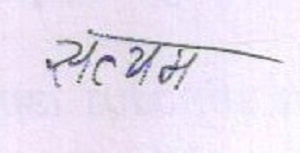 सत्यम